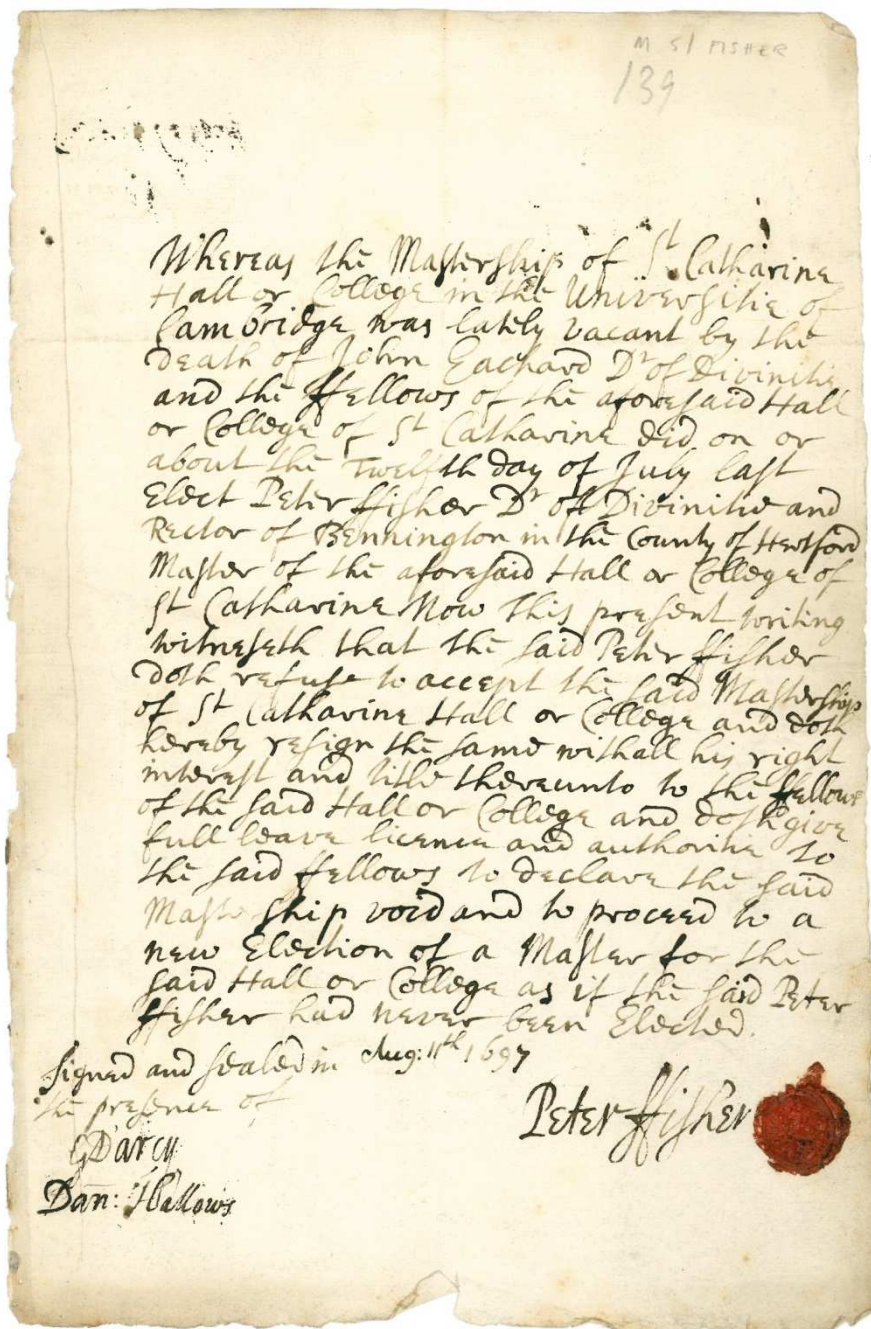 M 51 FISHER
139
Whereas the Mastership of St Catharine
Hall or College in the Universitie of
Cambridge was lately vacant by the
death of John Eachard Dr of Divinitie
and the ffellows of the aforesaid Hall
or College of St Catharine did on or
about the Twelfth day of July last
Elect Peter ffisher Dr of Divinitie and
Rector of Bennington in the County of Hertford
Master of the aforesaid Hall or College of
St Catharine Now this present writing
witneseth that the said Peter ffisher
doth refuse to accept the said Mastership
of St Catharine Hall or College and doth
hereby resign the same withall his right
interest and title thereunto to the ffellows
of the said Hall or College and doth give
full leave licence and authoritie to
the said ffellows to declare the said
Mastership void and to proceed to a
new Election of a Master for the
said Hall or College as if the said Peter
ffisher had never been Elected.
Signed and sealed in Aug: 11th 1697
the presence of
Peter ffisher
GDarcy
Dan: Hallows